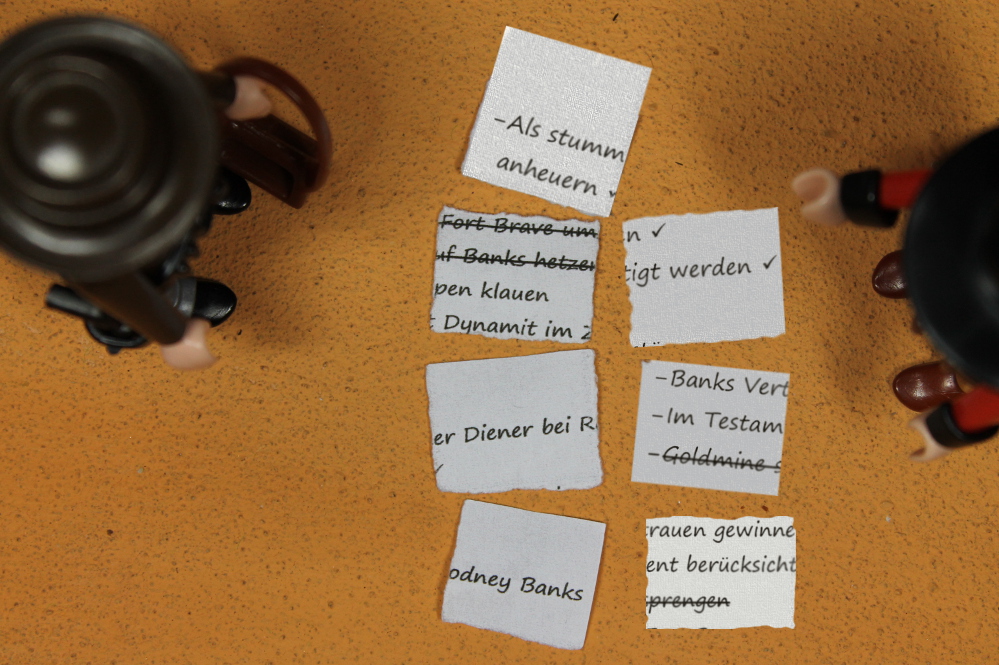 -Als stumm
anheuern ✓
Fort Brave um
uf Banks hetzen
pen klauen
Dynamit im
n ✓
tigt werden ✓
er Diener bei R
✓
-Banks Vert
-Im Testam
-Goldmine s
odney Banks
rauen gewinne
ent berücksicht
sprengen